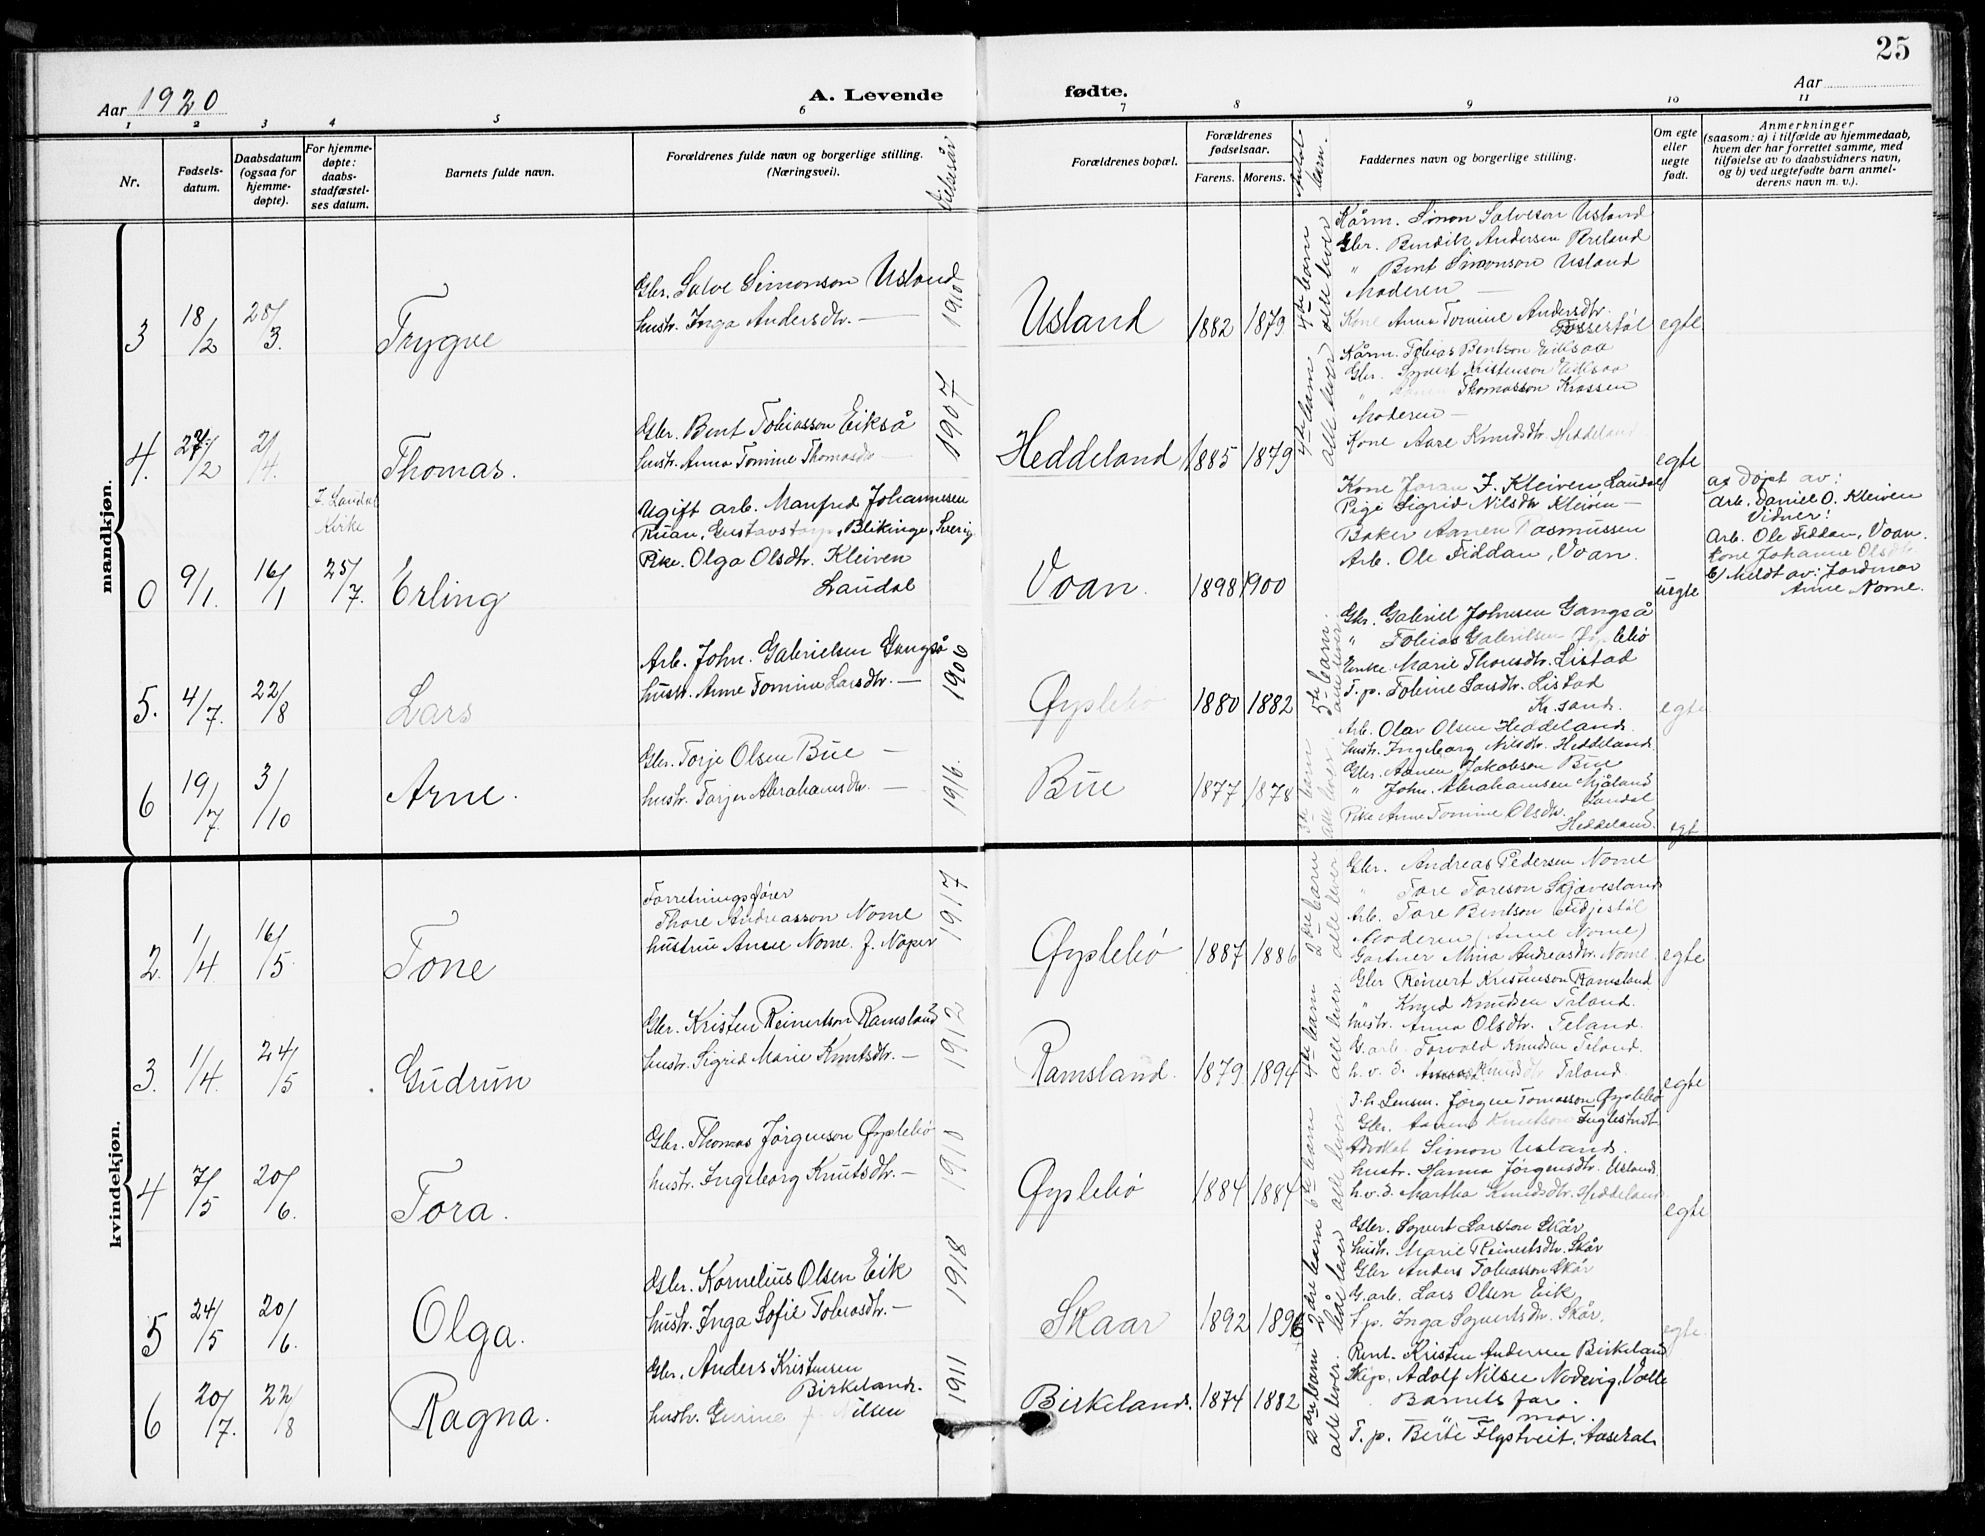 25
Aar 1920
A. Levende
fødte.
Aar
1 2 3 4 5 6 7 8 9 10 11
Nr.
Fødsels-
datum.
Daabsdatum
(ogsaa for
hjemme-
døpte).
For hjemme-
døpte:
daabs-
stadfæstel-
ses datum.
Barnets fulde navn.
Forældrenes fulde navn og borgerlige stilling.
(Næringsvei).
Vielsesår
Forældrenes bopæl.
Forældrenes
fødselsaar.
Farens. Morens.
Antal
barn.
Faddernes navn og borgerlige stilling.
Om egte
eller
uegte
født.
Anmerkninger
(saasom: a) i tilfælde av hjemmedaab,
hvem der har forrettet samme, med
tilføielse av to daabsvidners navn,
og b) ved uegtefødte barn anmel-
derens navn m. v.).
mandkjøn.
3 18/2 28/3. Trygve
Gbr. Salve Simonson Usland
hustr. Inga Andersdtr. —
1910
Usland 1882 1879
4de barn
alle lever
Kårm. Simon Salveson Usland
Gbr. Bendik Andersen
" Bent Simonson Usland
Moderen —
Kone Anna Tomine Andersdtr.
Fossestøl
egte
4. 27/2 2/4. Thomas.
Gbr. Bent Tobiasson Eikså
hustr. Anna Tomine Thomasdtr —
1907
Heddeland 1885 1879
4de barn
alle lever
Kårm. Tobias Bentson Eiksaa
Gbr. Syvert Kristenson Eiksaa
" Thomasson Krossen
Moderen —
Kone Aase Knudsdtr Heddeland
egte
0 9/1. 16/1 25/7.
F. Laudal
Kirke
Erling
Ugift arb. Manfred Johannesen
Ruan, Gustavstorp, Blikinge, Sverig
Pike. Olga Olsdtr. Kleiven
Laudal
Voan. 1898 1900
Kone Joran F. Kleiven Laudal
Pige Sigrid Nilsdtr Kleiven —
Baker Aanen Rasmussen
Arb. Ole Fiddan, Voan.
uegte
a) Døpt av:
Arb. Daniel O. Kleiven
Vidner:
Arb. Ole Fiddan, Voan.
Kone Johanne Olsdtr
b) Meldt av: Jordmor
Anne Nome.
5. 4/7. 22/8 Lars
Arb. John. Gabrielsen Gangså
hustr. Anne Tomine Larsdtr. —
1906
Øyslebø 1880 1882
5te barn.
alle lever
Gbr. Gabriel Johnsen Gangså
" Tobias Gabrielsen Øyslebø
Enke. Marie Thorsdtr. Listad
T. p. Tobine Larsdtr. Listad
Kr. sand.
egte
6 19/7. 3/10 Arne.
Gbr. Torje Olsen Bue —
hustr. Torjer Abrahamsdtr. —
1916.
Bue 1877 1878
3de barn
alle lever
Arb. Olav Olsen Heddeland.
hustr. Ingeborg Nilsdtr. Heddeland.
Gbr. Aanen Jakobsen Bue
" John. Abrahamsen Mjåland
Laudal
Pike Anne Tomine Olsdtr.
Heddeland.
egt
kvindekjøn.
2. 1/4 16/5 Tone
Forretningsfører
Thore Andreasson Nome
hustru Anne Nome. f. Noper
1917
Øyslebø 1887 1886
2dre barn
alle lever
Gbr. Andreas Pedersen Nome
" Tore Toreson Skjævesland
Arb. Tore Bentson Fidjestøl
Moderen (Anne Nome)
Gartner Mina Andreasdtr. Nome.
egte
3. 1/4. 24/5 Gudrun
Gbr. Kristen Reinertson Ramsland
hustr. Sigrid Marie Knutsdtr. —
1912
Ramsland. 1879 1894
4de barn
alle lever
Gbr Reinert Kristenson Ramsland
" Knud Knudsen Foland.
hustr. Anna Olsdtr. Foland.
G. arb. Torvald Knudsen Foland.
h. v. d. Knudsdtr Foland.
egte
4 7/5 20/6. Tora.
Gbr. Thomas Jørgenson Øyslebø
hustr. Ingeborg Knutsdtr. —
1910
Øyslebø 1884 1884
6te barn
alle lever
F. h. Lensm. Jørgen Tomasson Øyslebø
Gbr. Knutson Fuglestvedt
Advokat Simon Usland.
hustr. Hanna Jørgensdtr. Usland
h. v. d. Martha Knudsdtr. Heddeland.
egte
5 24/5 20/6. Olga.
Gbr. Kornelius Olsen Eik
hustr. Inga Sofie Tobiasdtr. —
1918
Skaar 1892 1896
2dre barn
båe lever
Gbr. Syvert Larsson Skår
hustr. Marie Reinertsdtr. Skår
Gbr Anders Tobiasson Skår
G. arb. Lars Olsen Eik
T. p. Inga Syvertsdtr. Skår.
egte.
6 20/7. 22/8 Ragna.
Gbr. Anders Kristensen
Birkeland.
hustr. Gurine f. Nilsen
1911
Birkeland. 1874 1882
2dre barn
alle lever.
Rent. Kristen Andersen Birkeland
Skip. Adolf Nilsen Nodevig, Valle
Barnets far.
" mor.
T. p. Berte Flystveit, Aaseral